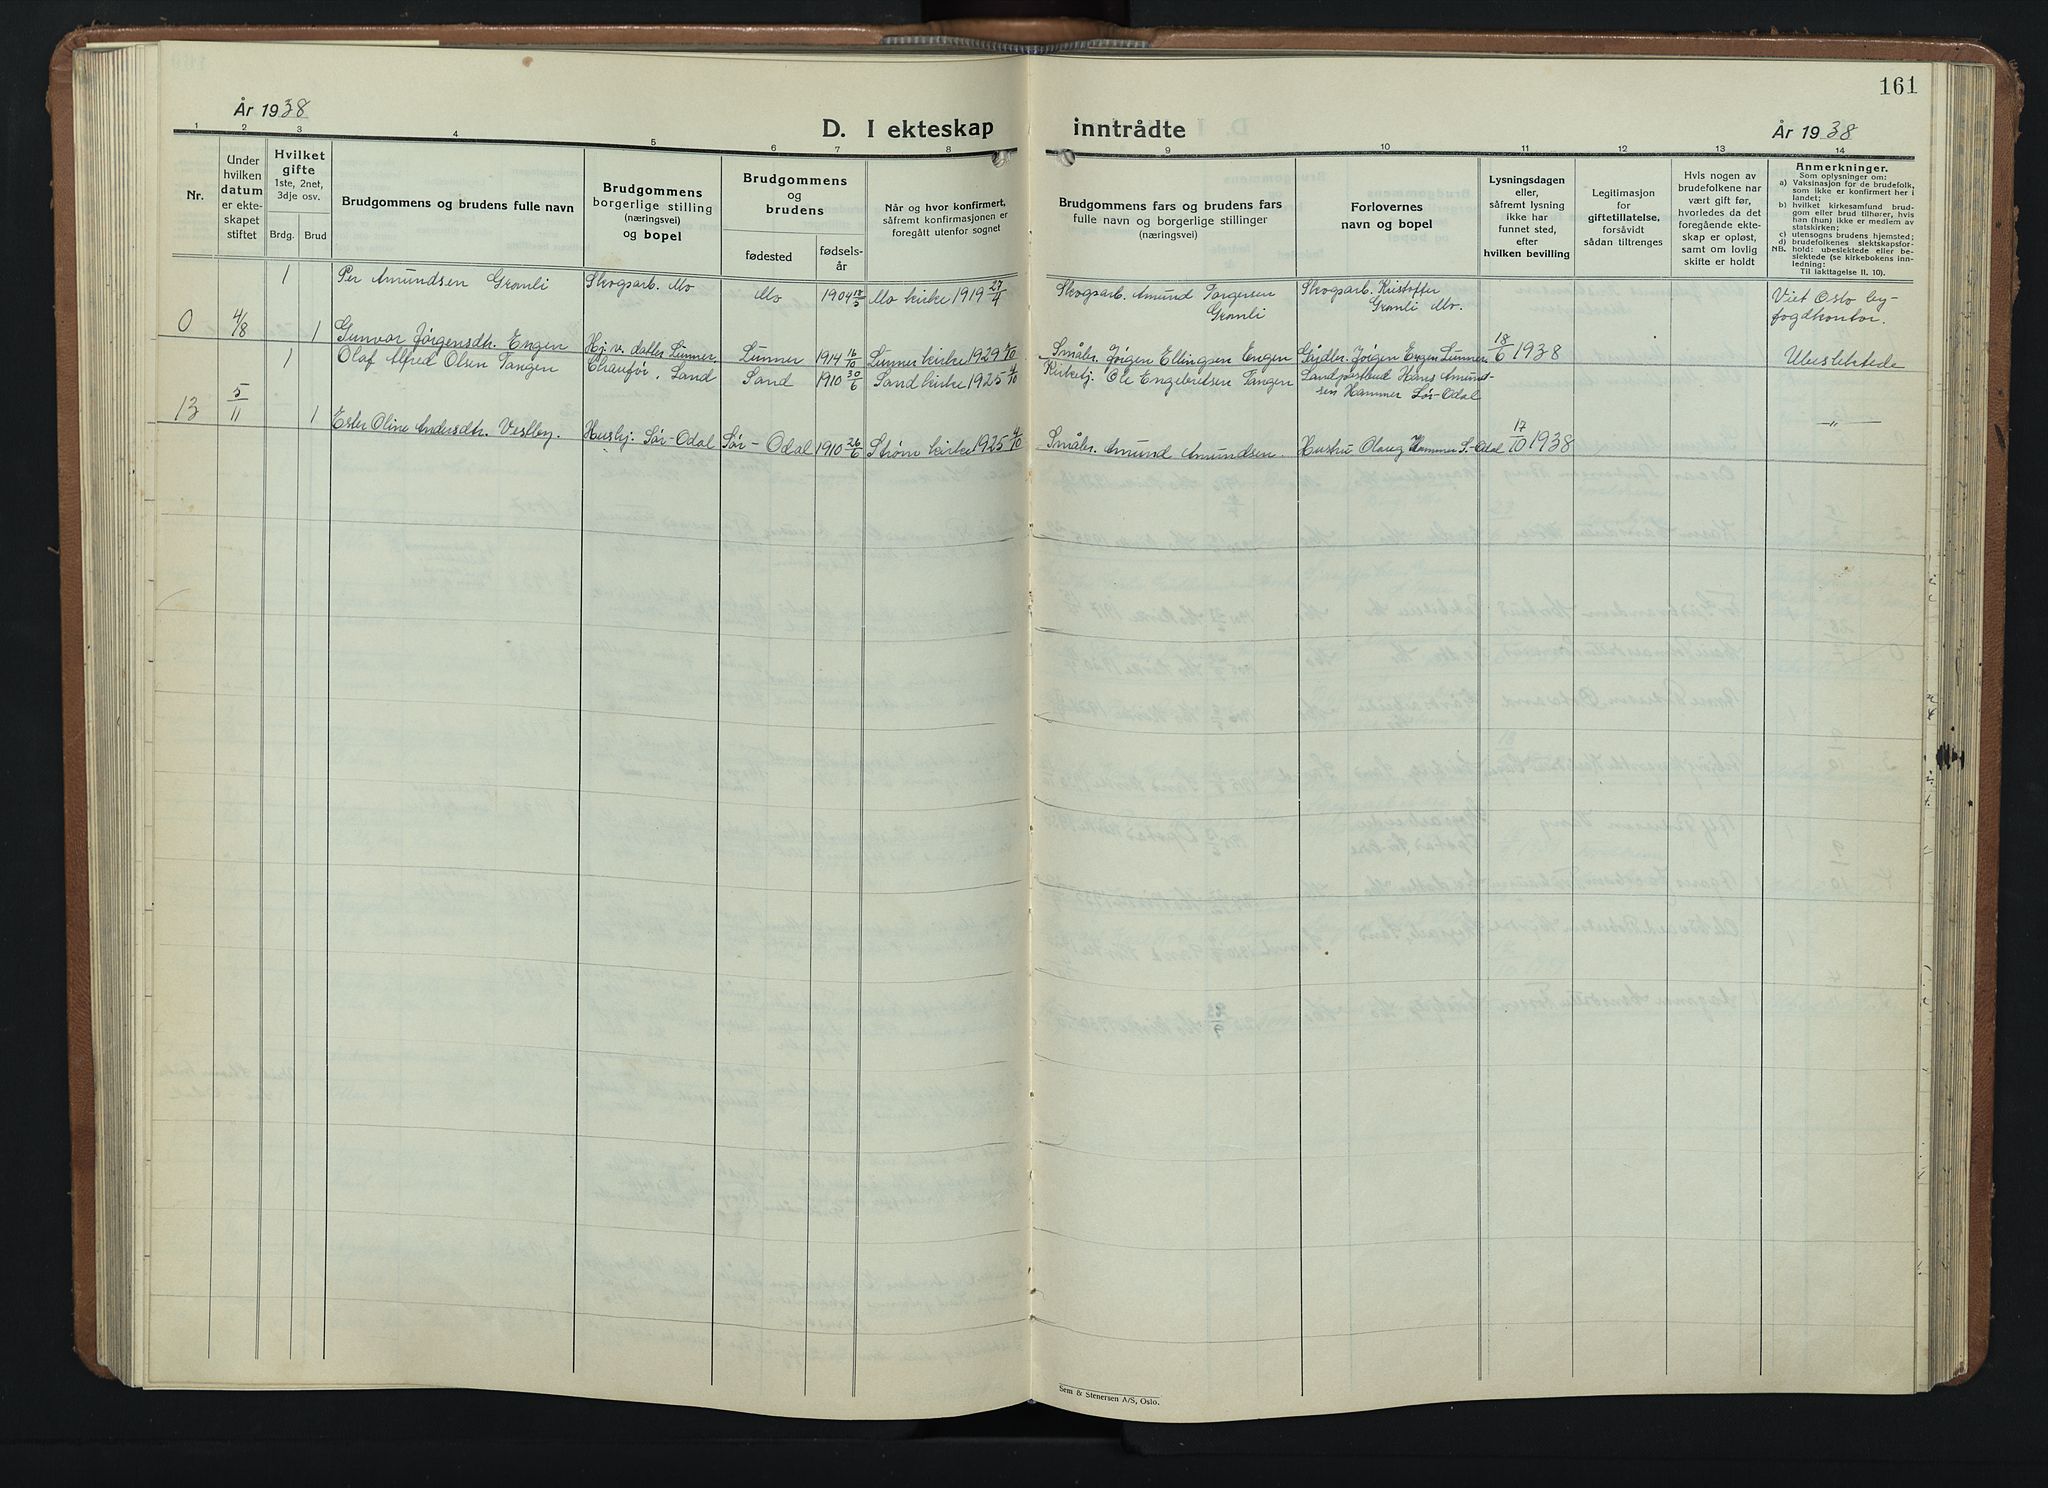 161
År 1938
D. I ekteskap inntrådte
År 1938
1 2 3 4 5 6 7 8 9 10 11 12 13 14
Nr.
Under hvilken datum er ekte-skapet stiftet
Hvilket gifte 1ste, 2net, 3dje osv.
Brdg. Brud
Brudgommens og brudens fulle navn
Brudgommens borgerlige stilling (næringsvei) og bopel
Brudgommens og brudens
fødested
fødsels-år
Når og hvor konfirmert, såfremt konfirmasjonen er foregått utenfor sognet
Brudgommens fars og brudens fars fulle navn og borgerlige stillinger (næringsvei)
Forlovernes navn og bopel
Lysningsdagen eller, såfremt lysning ikke har funnet sted, efter hvilken bevilling
Legitimasjon for giftetillatelse, forsåvidt sådan tiltrenges
Hvis nogen av brudefolkene har vært gift før, hvorledes da det foregående ekte-skap er opløst, samt om lovlig skifte er holdt
Anmerkninger.
Som oplysninger om:
a) Vaksinasjon for de brudefolk, som ikke er konfirmert her i landet;
b) hvilket kirkesamfund brud-gom eller brud tilhører, hvis han (hun) ikke er medlem av statskirken;
c) utensogns brudens hjemsted;
d) brudefolkenes slektskapsfor-hold: ubeslektede eller be-slektede (se kirkebokens inn-ledning:
NB.
Til iakttagelse II. 10).
1 Per Amundsen Gromli Skogsarb. Mo Mo 1904 18/5 Mo kirke 1919 27/4 Skogsarb. Amund Torgersen Gromli Skogsarb. Kristoffer Gromli Mo. Viet Oslo by-fogdkontor.
0 4/8 1 Gunvor Jørgensdtr. Engen Hj. v. datter Lunner Lunner 1914 16/10 Lunner kirke 1929 Småbr. Jørgen Ellingsen Engen Gårdbr. Jørgen Engen Lunner 18/6 1938 Ubeslektede
1 Olaf Alfred Olsen Tangen Chauffør, Sand Sand 1910 30/6 Sand kirke 1925 4/10 Kirketj. Ole Engebretsen Tangen Landpostbud Hans Amund-sen Hammer Sør-Odal
13 5/11 1 Ester Oline Andersdtr. Vestby. Hushj. Sør-Odal Sør-Odal 1910 26/6 Strøm kirke 1925 4/10 Småbr. Amund Amundsen Hustru Olaug Hammer S.-Odal 17/10 1938 -"-
Sem & Stenersen A/S, Oslo.